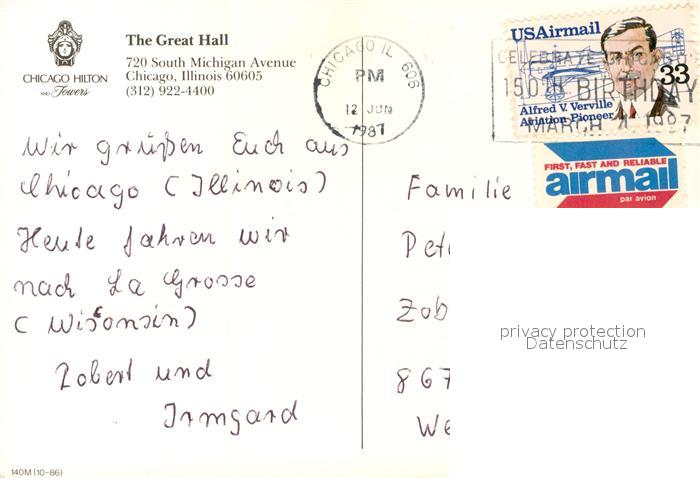 CHICAGO HILTON
AND Towers
The Great Hall
720 South Michigan Avenue
Chicago, Illinois 60605
(312) 922-4400
CHICAGO IL 606
PM
12 JUN
1987
USAirmail
33
Alfred V. Verville
Aviation Pioneer
CELEBRATE CHICAGO
150TH BIRTHDAY
MARCH 4 1987
FIRST, FAST AND RELIABLE
airmail
par avion
Wir grüßen Euch aus
Chicago (Illinois)
Heute fahren wir
nach La Grosse
(Wisconsin)
Robert und
Irmgard
Familie
Pet
Zob
867
We
privacy protection
Datenschutz
140M (10-86)